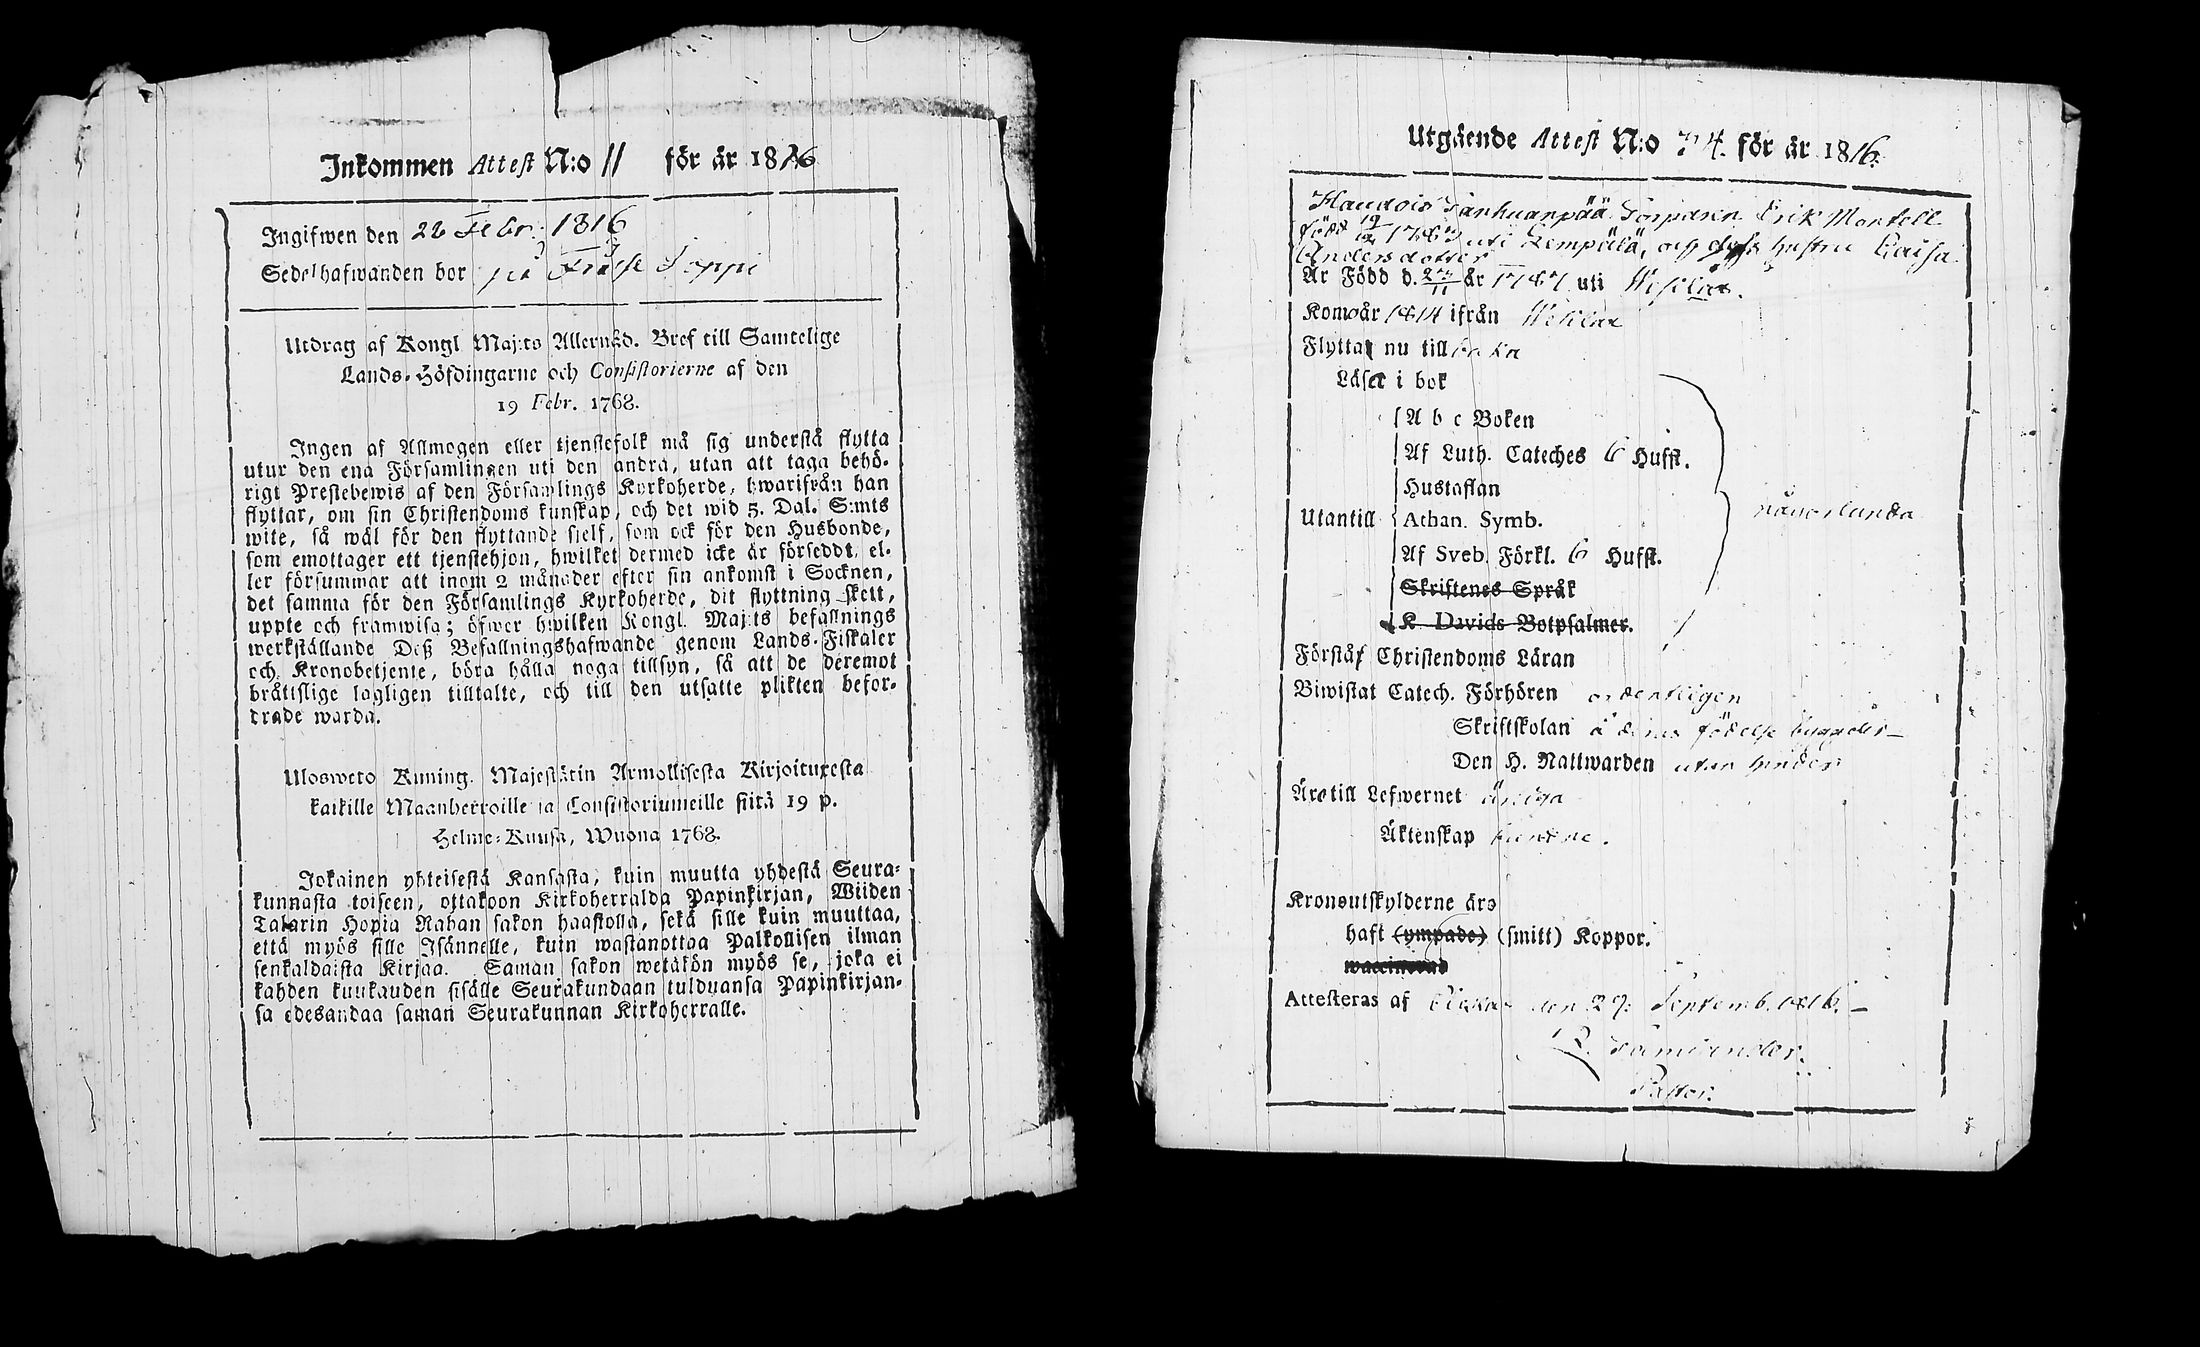 Inkommen Attest N:o 11 för år 1816
Ingifwen den 22 Febr. 1816
Sedelhafwanden bor på Soppi
Utdrag af Kongl Maj:ts Allernåd. Bref till Samtelige
Lands-Höfdingarne och Consistorierne af den
19 Febr. 1768.
Ingen af Allmogen eller tjenstefolk må sig understå flytta
utur den ena Församlingen uti den andra, utan att taga behö-
rigt Prestebewis af den Församlings Kyrkoherde, hwarifrån han
flyttar, om sin Christendoms kunskap, och det wid 5. Dal. S:mts
wite, så wäl för den flyttande sjelf, som ock för den Husbonde,
som emottager ett tjenstehjon, hwilket dermed icke är försedt, el-
ler försummar att inom 2 månader efter sin ankomst i Socknen,
det samma för den Församlings Kyrkoherde, dit flyttning skett,
uppte och framwisa; öfwer hwilken Kongl. Maj:ts befallnings
werkställande Deß Befallningshafwande genom Lands-Fiskaler
och Kronobetjente, böra hålla noga tillsyn, så att de deremot
bråttslige lagligen tilltalte, och till den utsatte plikten befor-
drade warda.
Ulosweto Kuning. Majestätin Armollisesta Kirjoituxesta
kaikille Maanherroille ja Consistoriumeille siitä 19 p.
Helme-Kuusa, Wuona 1768.
Jokainen yhteisestä Kansasta, kuin muutta yhdestä Seura-
kunnasta toiseen, ottakoon Kirkoherralda Papinkirjan, Wiiden
Talarin Hopia Rahan sakon haastolla, sekä sille kuin muuttaa,
että myös sille Isännelle, kuin wastanottaa Palkollisen ilman
senkaldaista Kirjaa. Saman sakon wetäkön myös se, joka ei
kahden kuukauden sisälle Seurakundaan tulduansa Papinkirjan-
sa edesandaa saman Seurakunnan Kirkoherralle.
Utgående Attest N:o 74. för år 1816.
Torparen Erik Mantell
född 19/12 1787 uti Lempälä, och dess hustru Caisa
Andersdotter
Är Född d. 27/11 år 1787 uti Wesilax.
Kom år 1814 ifrån Wesilax
Flytta nu tillbaka
Läsa i bok
A b c Boken
Af Luth. Cateches 6 Hufst.
Hustaflan
Utantill Athan. Symb.
Af Sveb. Förkl. 6 Hufst.
Skriftenes Språk
K. Davids Botpsalmer.
nånorlunda
Förstå Christendoms Läran
Biwistat Catech. Förhören ordentligen
Skriftskolan å deras födelse bygder
Den H. Nattwarden utan hinder
Äro till Lefwernet ärliga
Äktenskap bundne.
Kronoutskylderne äro
haft (ympade) (smitt) Koppor.
waccinerad
Attesteras af den 27. Septemb. 1816.
Pastor.